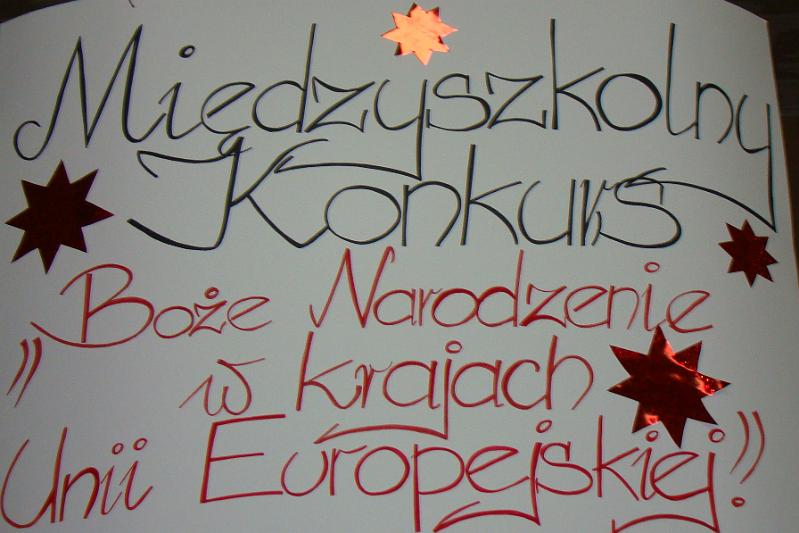 Międzyszkolny
Konkurs
„Boże Narodzenie
w krajach
Unii Europejskiej."